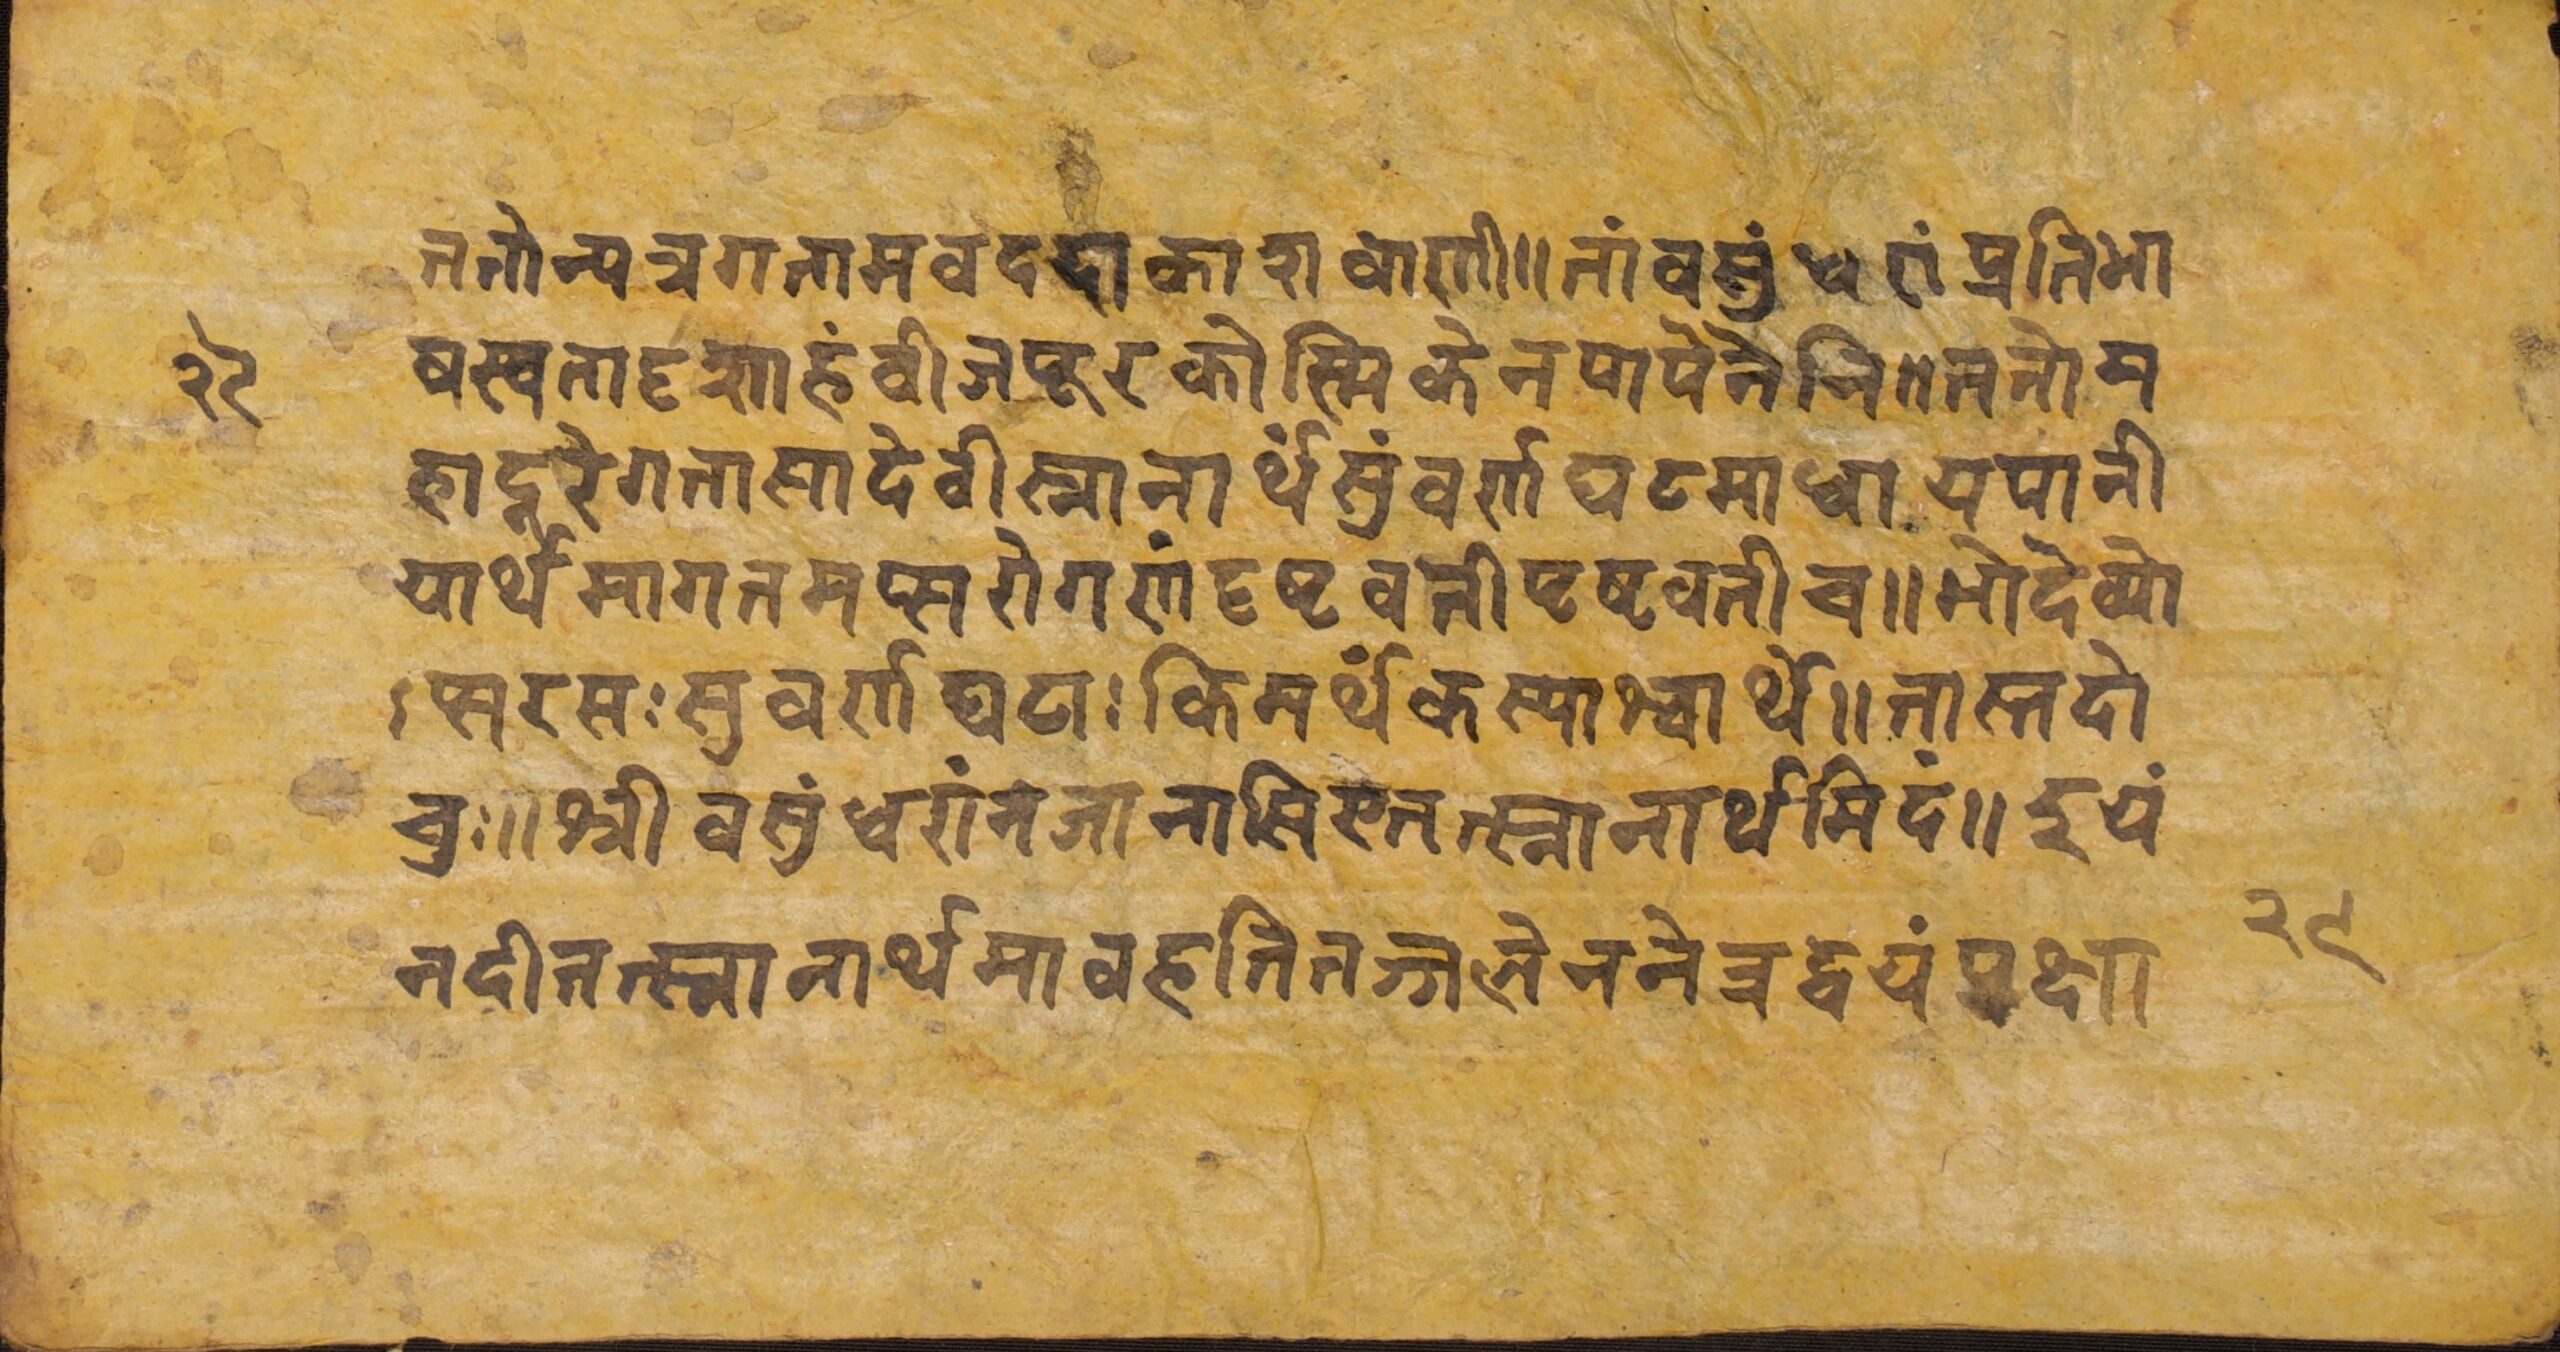 ततोन्यत्रगतामवददाकाशवाणी॥तांवसुंधरांप्रतिभा
२९ षस्वतादृशाहंवीजपूरकोस्मिकेनपापेनेति॥ततोम
हादूरेगतासादेवीस्नानार्थंसुंवर्णघटमाधायपानी
यार्थमागतमप्सरोगणंदृष्टवतीपृष्टवतीच॥भोदेव्यो
ऽप्सरसःसुवर्णघटाःकिमर्थंकस्याश्चार्थे॥तास्तदो
चुः॥श्रीवसुंधरांनजानासिएतत्स्नानार्थमिदं॥इयं
नदीतत्स्नानार्थमावहतितज्जलेननेत्रद्वयंप्रक्षा
२९